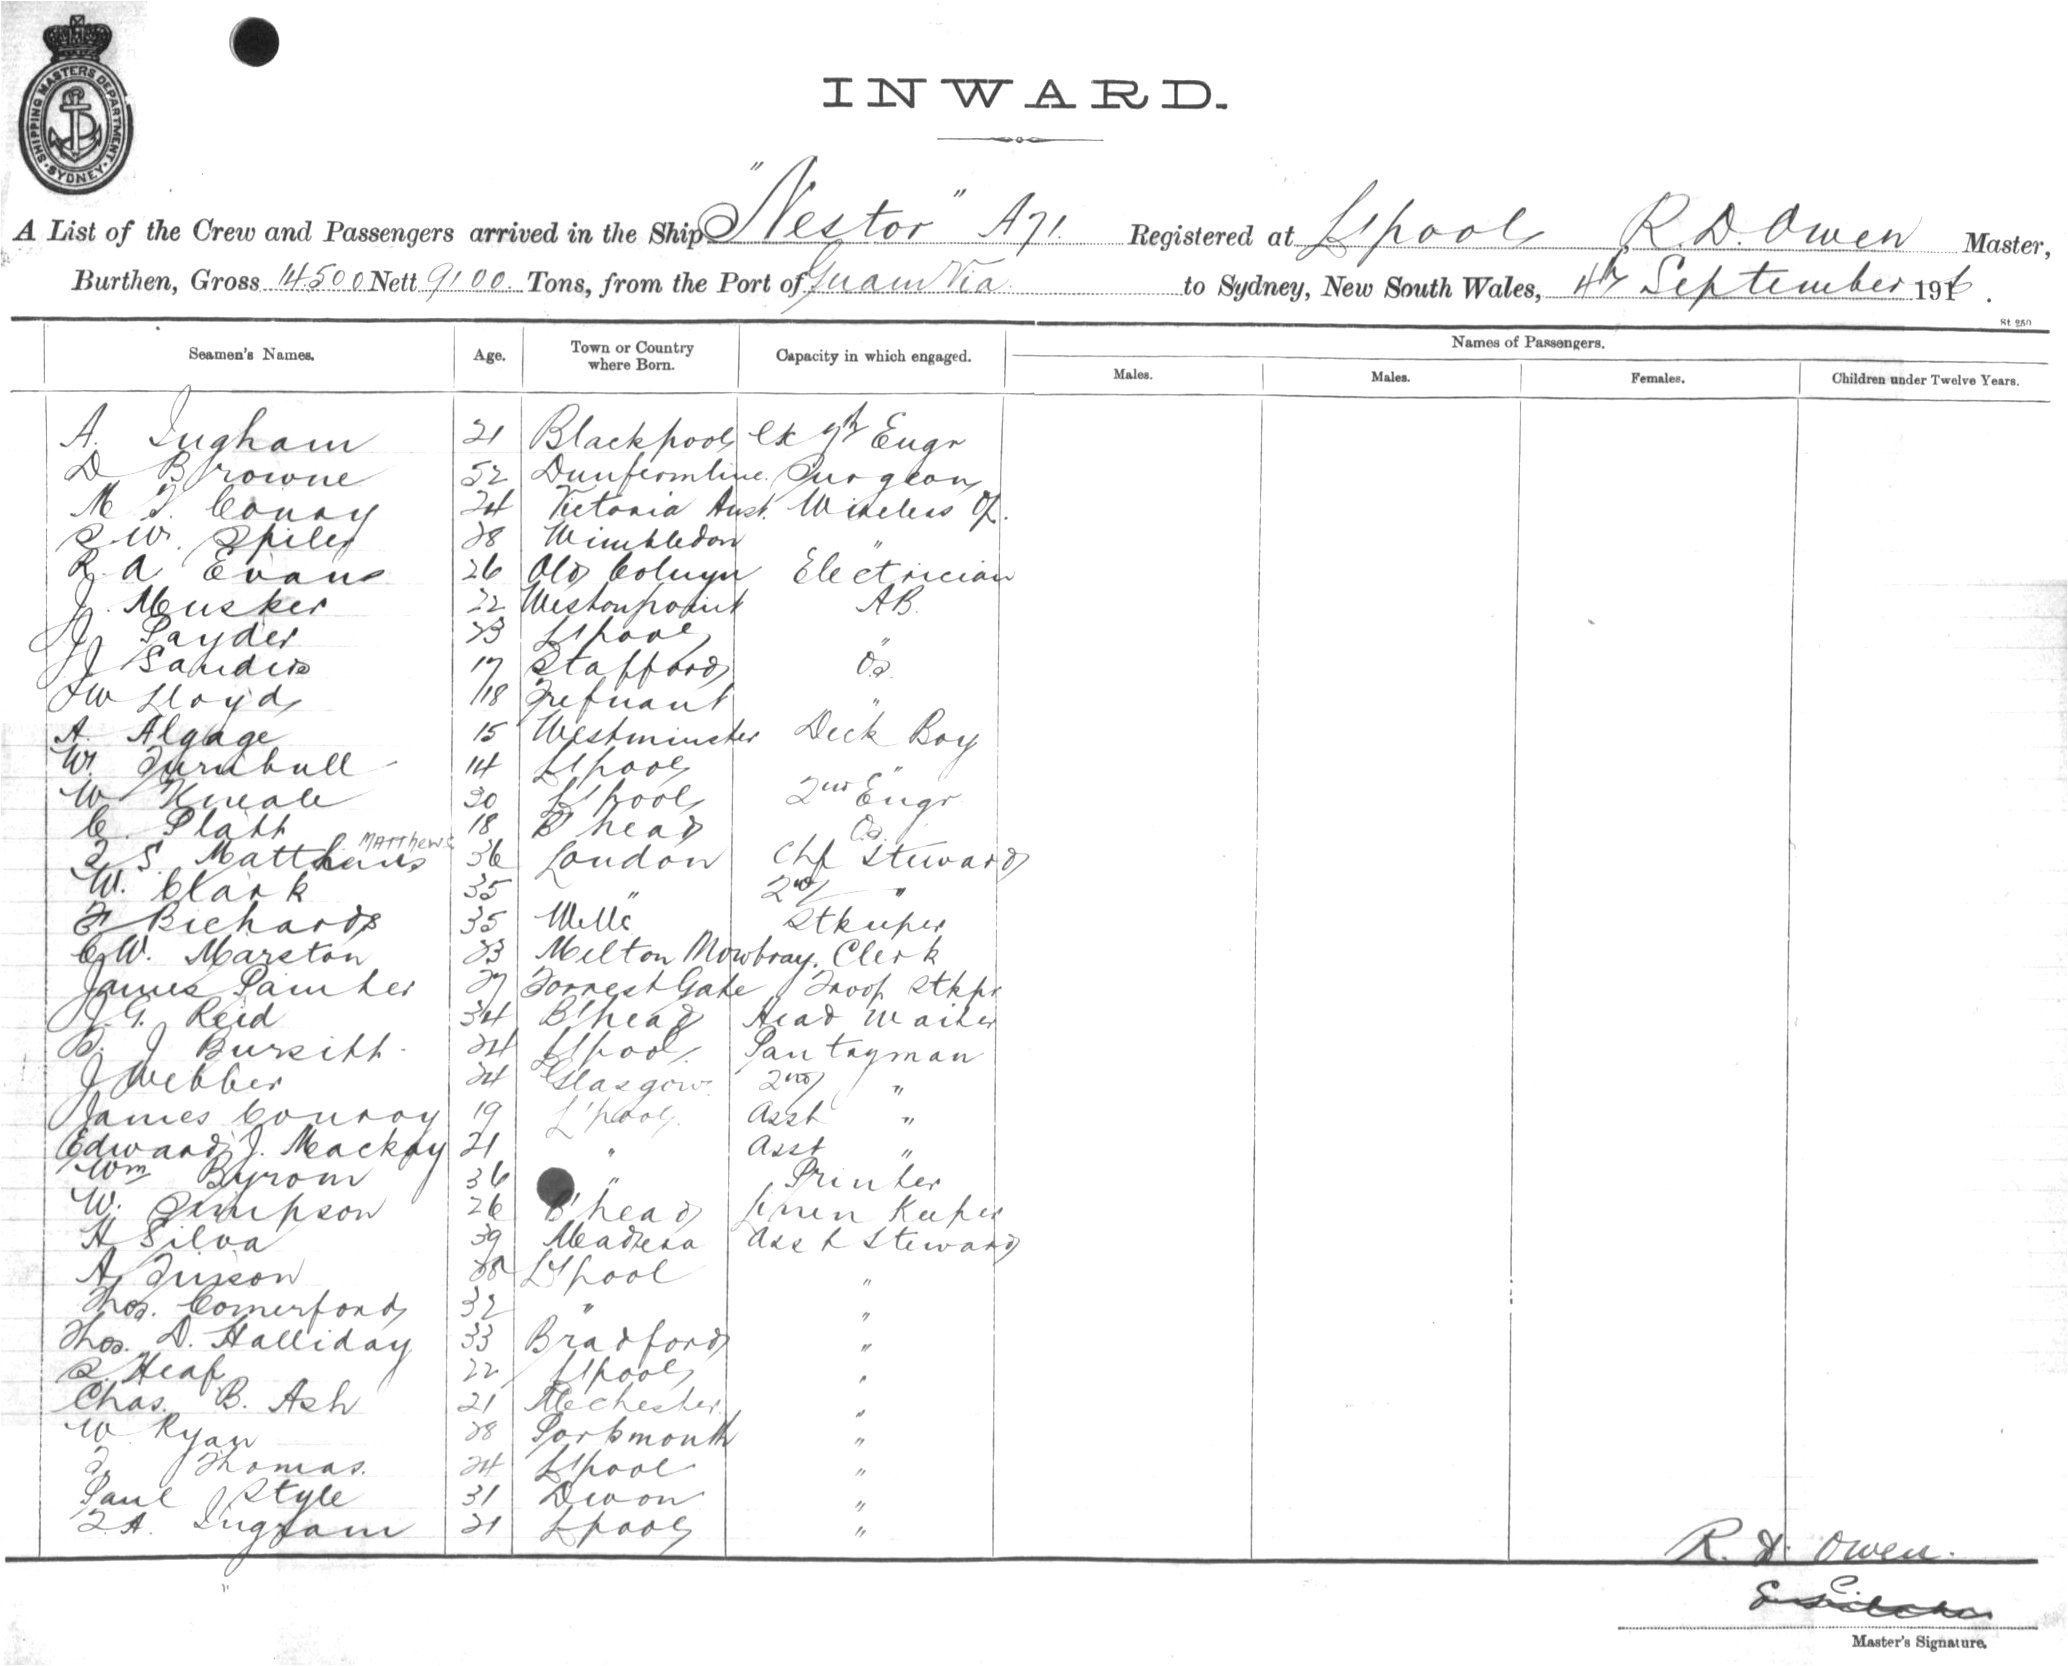 SHIPPING MASTERS DEPARTMENT. SYDNEY
INWARD.
A List of the Crew and Passengers arrived in the Ship "Nestor" A71. Registered at L'pool, R. D. Owen Master,
Burthen, Gross 14500 Nett 9100 Tons, from the Port of Via to Sydney, New South Wales, 4th September 1916.
St 250
Seamen's Names. Age. Town or Country where Born. Capacity in which engaged. Names of Passengers.
Males. Males. Females. Children under Twelve Years.
A. Ingham 21 Blackpool Engr
D Browne 52 Dunfermline Surgeon
M J. Conry 24 Victoria Aust. Wireless Op.
S. W. 28 Wimbledon "
R. A Evans 26 Old Colwyn Electrician
J. Musker 22 Westonpoint AB.
J. 23 L'pool "
J Sanders 17 Stafford Os.
J W Lloyd 18 Trefnant "
A. Algage 15 Westminster Deck Boy
W. Turnbull 14 L'pool "
W Kneale 30 L'pool 2nd Engr
C. Platt 18 B'head Os.
S. Matthews MATTHEWS 36 London Chf Steward
W. Clark 35 " 2nd "
F Richards 35 Wells Stkeeper
C W. Marston 23 Melton Mowbray. Clerk
James Painter 27 Forrest Gate Troop Stkpr
J. G. Reid 34 B'head Head Waiter
J Bursitt 24 L'pool. Pantryman
J Webber 24 Glasgow 2nd "
James Conroy 19 L'pool. Asst "
Edward J. Mackay 21 " Asst "
Wm Byrom 36 " Printer
W. Simpson 26 B'head Linen Keeper
H Silva 39 Madiera Asst Steward
A. 28 L'pool "
Thos. Comerford 32 " "
Thos. D. Halliday 33 Bradford "
S. Heaf 22 L'pool "
Chas. B. Ash 21 Mchester "
W Ryan 28 Portsmouth "
Thomas. 24 L'pool "
Paul Style 31 Devon "
Ingram 21 L'pool "
R. D. Owen.
Master's Signature.